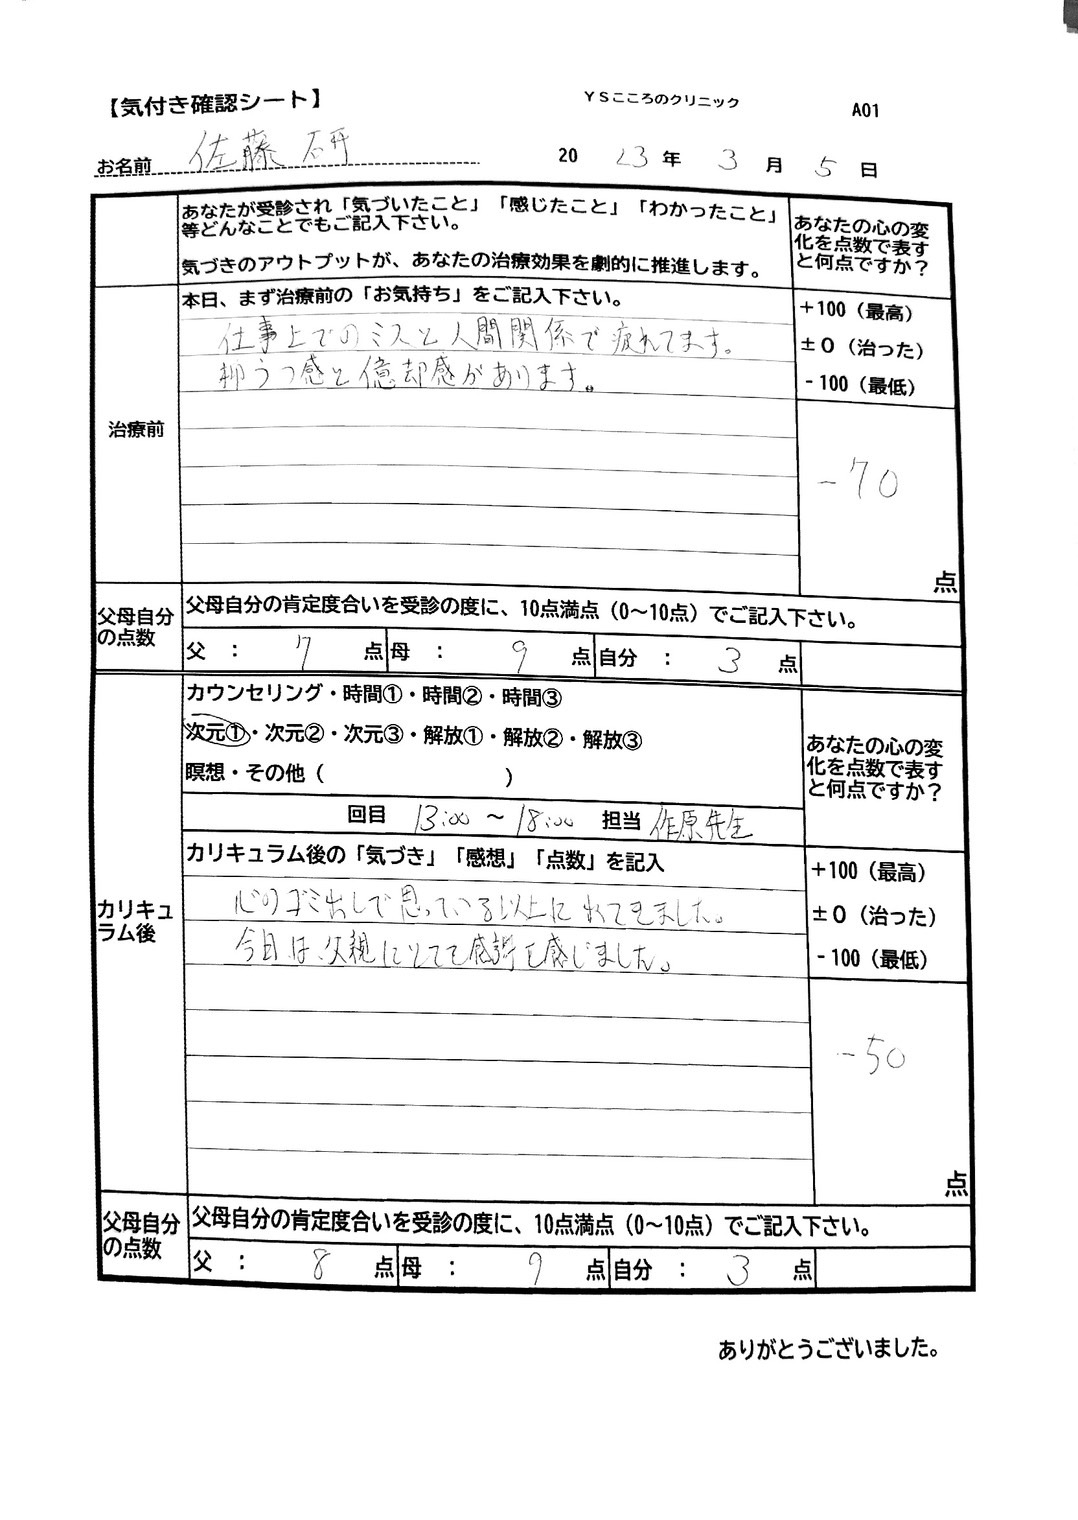 【気付き確認シート】
YSこころのクリニック
A01
お名前 佐藤 研
20 23年 3月 5日
あなたが受診され「気づいたこと」「感じたこと」「わかったこと」
等どんなことでもご記入下さい。
気づきのアウトプットが、あなたの治療効果を劇的に推進します。
あなたの心の変
化を点数で表す
と何点ですか?
治療前
本日、まず治療前の「お気持ち」をご記入下さい。
仕事上でのミスと人間関係で疲れてます。
抑うつ感と億却感があります。
+100(最高)
±0(治った)
-100(最低)
-70
点
父母自分
の点数
父母自分の肯定度合いを受診の度に、10点満点(0〜10点)でご記入下さい。
父 : 7 点 母 : 9 点 自分 : 3 点
カウンセリング・時間①・時間②・時間③
次元①・次元②・次元③・解放①・解放②・解放③
瞑想・その他( )
回目 13:00 〜 18:00 担当 作原先生
あなたの心の変
化を点数で表す
と何点ですか?
カリキュ
ラム後
カリキュラム後の「気づき」「感想」「点数」を記入
心のゴミ出しで思っている以上に出てきました。
今日は父親にとても感謝を感じました。
+100(最高)
±0(治った)
-100(最低)
-50
点
父母自分
の点数
父母自分の肯定度合いを受診の度に、10点満点(0〜10点)でご記入下さい。
父 : 8 点 母 : 9 点 自分 : 3 点
ありがとうございました。